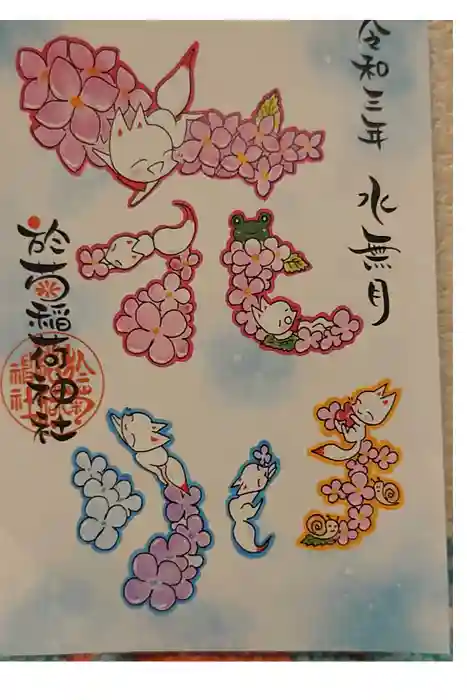 令和三年 水無月
花
於菊稲荷神社